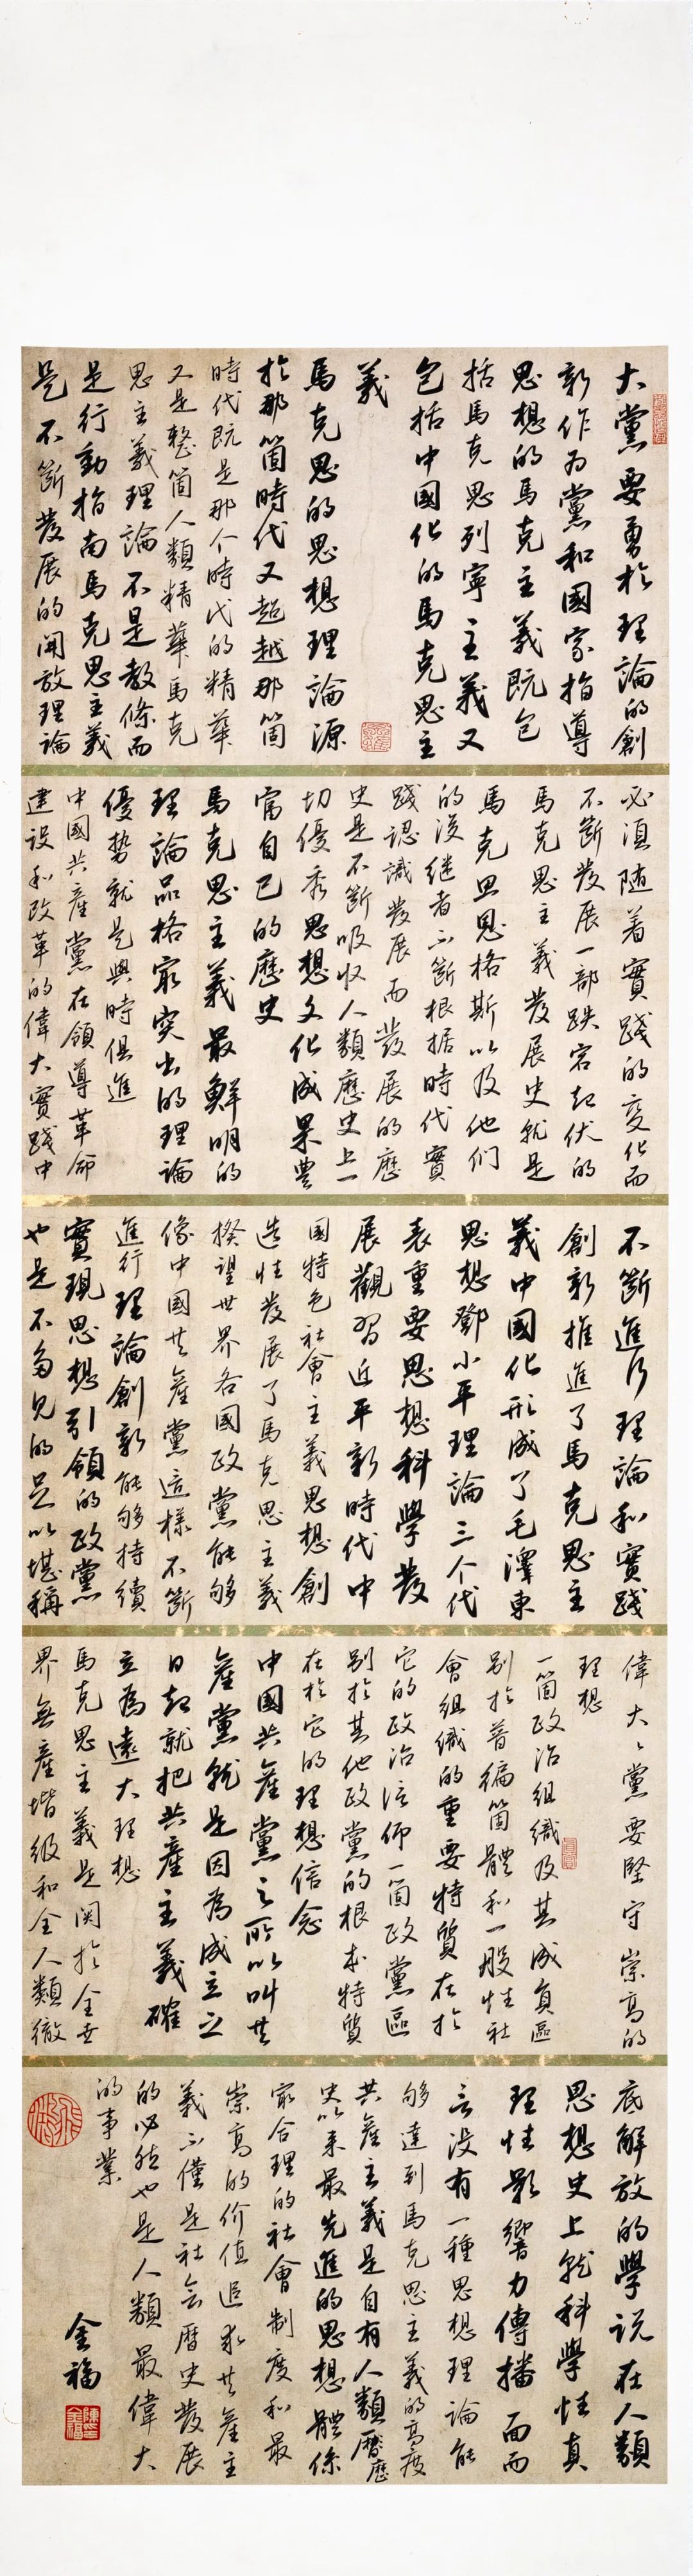 大黨要勇於理論的創
新作为黨和國家指導
思想的馬克主義既包
括馬克思列寧主義又
包括中國化的馬克思主
義
馬克思的思想理論源
於那箇時代又超越那箇
時代既是那个時代的精華
又是整箇人類精華馬克
思主義理論不是教條而
是行動指南馬克思主義
是不斷發展的開放理論
必須随着實踐的变化而
不斷發展一部跌宕起伏的
馬克思主義發展史就是
馬克思恩格斯以及他們
的後继者不斷根据時代實
踐認識發展而發展的歷
史是不斷吸收人類歷史上一
切優秀思想文化成果豐
富自己的歷史
馬克思主義最鮮明的
理論品格最突出的理論
優势就是與時俱進
中國共產黨在領導革命
建设和改革的偉大實踐中
不斷進行理論和實踐
創新推進了馬克思主
義中國化形成了毛澤東
思想鄧小平理論三个代
表重要思想科學發
展觀習近平新時代中
國特色社會主義思想創
造性發展了馬克思主義
揆望世界各國政黨能够
像中國共產黨這樣不斷
進行理論創新能够持續
實現思想引領的政黨
也是不多见的足以堪稱
偉大、黨要堅守崇高的
理想
一箇政治组織及其成員區
别於普徧箇體和一般性社
會组織的重要特質在於
它的政治信仰一箇政黨區
别於其他政黨的根本特質
在於它的理想信念
中國共產黨之所以叫共
產黨就是因為成立之
日起就把共產主義確
立為遠大理想
馬克思主義是関於全世
界無產堦级和全人類徹
底解放的學说在人類
思想史上就科學性真
理性影響力傳播面而
言没有一種思想理論能
够達到馬克思主義的高度
共產主義是自有人類曆歷
史以来最先進的思想體係
最合理的社會制度和最
崇高的价值追求共產主
義不僅是社会曆史發展
的必然也是人類最偉大
的事業
金福